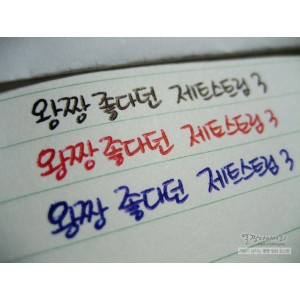 왕짱 좋다던 제트스트림 3
왕짱 좋다던 제트스트림 3
왕짱 좋다던 제트스트림 3